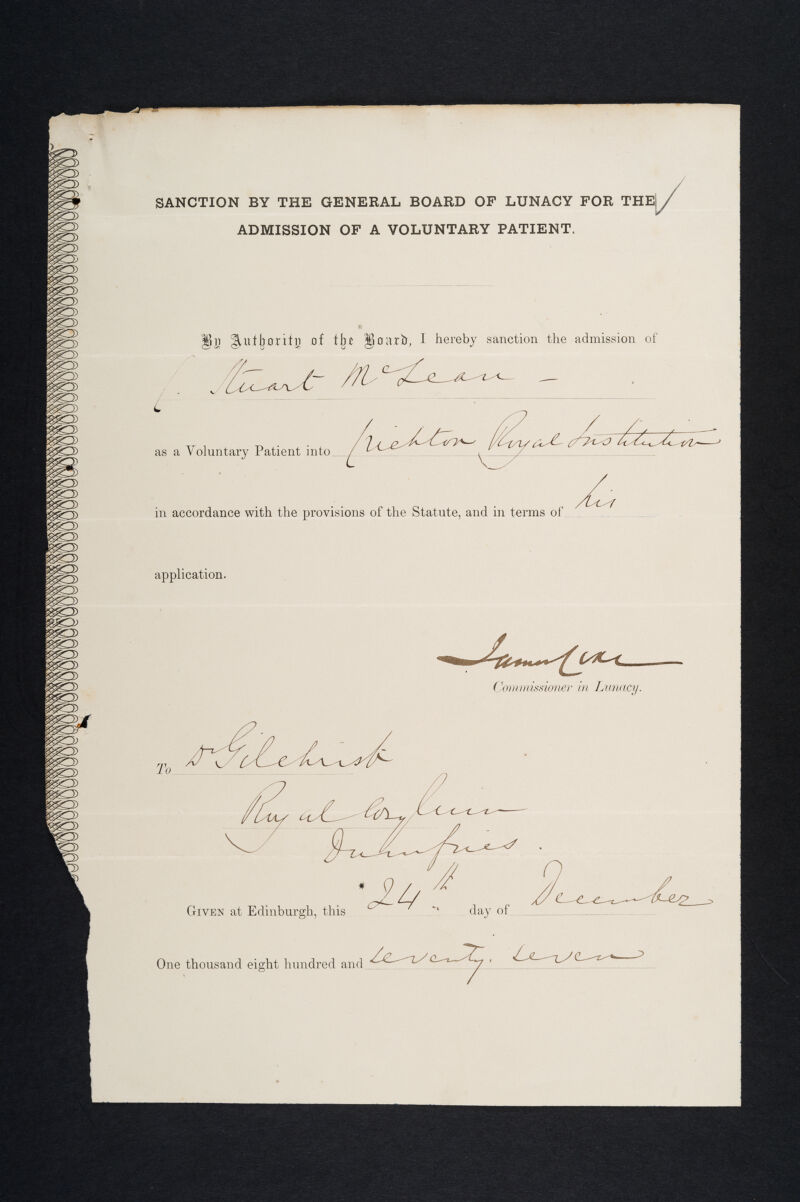 SANCTION BY THE GENERAL BOARD OF LUNACY FOR THE
ADMISSION OF A VOLUNTARY PATIENT.
By Authority of the Board, I hereby sanction the admission of
C. Stuart McLean –
as a Voluntary Patient into Crichton Royal Institution
in accordance with the provisions of the Statute, and in terms of his
application.
James Coxe
Commissioner in Lunacy.
To Dr Gilchrist
Royal Asylum
Dumfries.
GIVEN at Edinburgh, this 24th day of December
One thousand eight hundred and seventy. seven